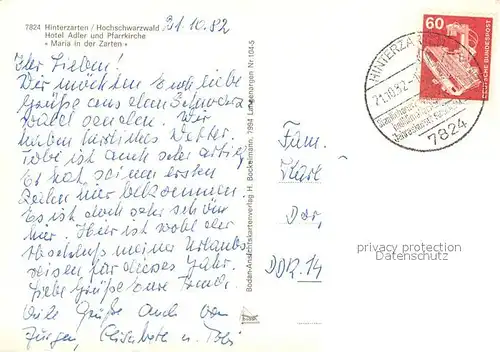 7824 Hinterzarten / Hochschwarzwald
Hotel Adler und Pfarrkirche
« Maria in der Zarten »
31.10.82
Ihr Lieben!
Wir möchten Euch liebe
Grüße aus dem Schwarz
wald senden. Wir
haben herrliches Wetter.
Tobi ist auch sehr artig
Er hat seinen ersten
Zahn hier bekommen
Es ist doch sehr schön
hier. Hier ist wohl der
Abschluß meiner Urlaubs
reisen für dieses Jahr.
Liebe Grüße Eure
Viele Grüße auch von
Jürgen, Elisabete u. Tobi
Bodan-Ansichtskartenverlag H. Bockelmann, 7994 Langenargen Nr. 104-5
HINTERZARTEN
21.10.82
7824
60
DEUTSCHE BUNDESPOST
Fam.
Karl
Dor,
DDR. 14
privacy protection